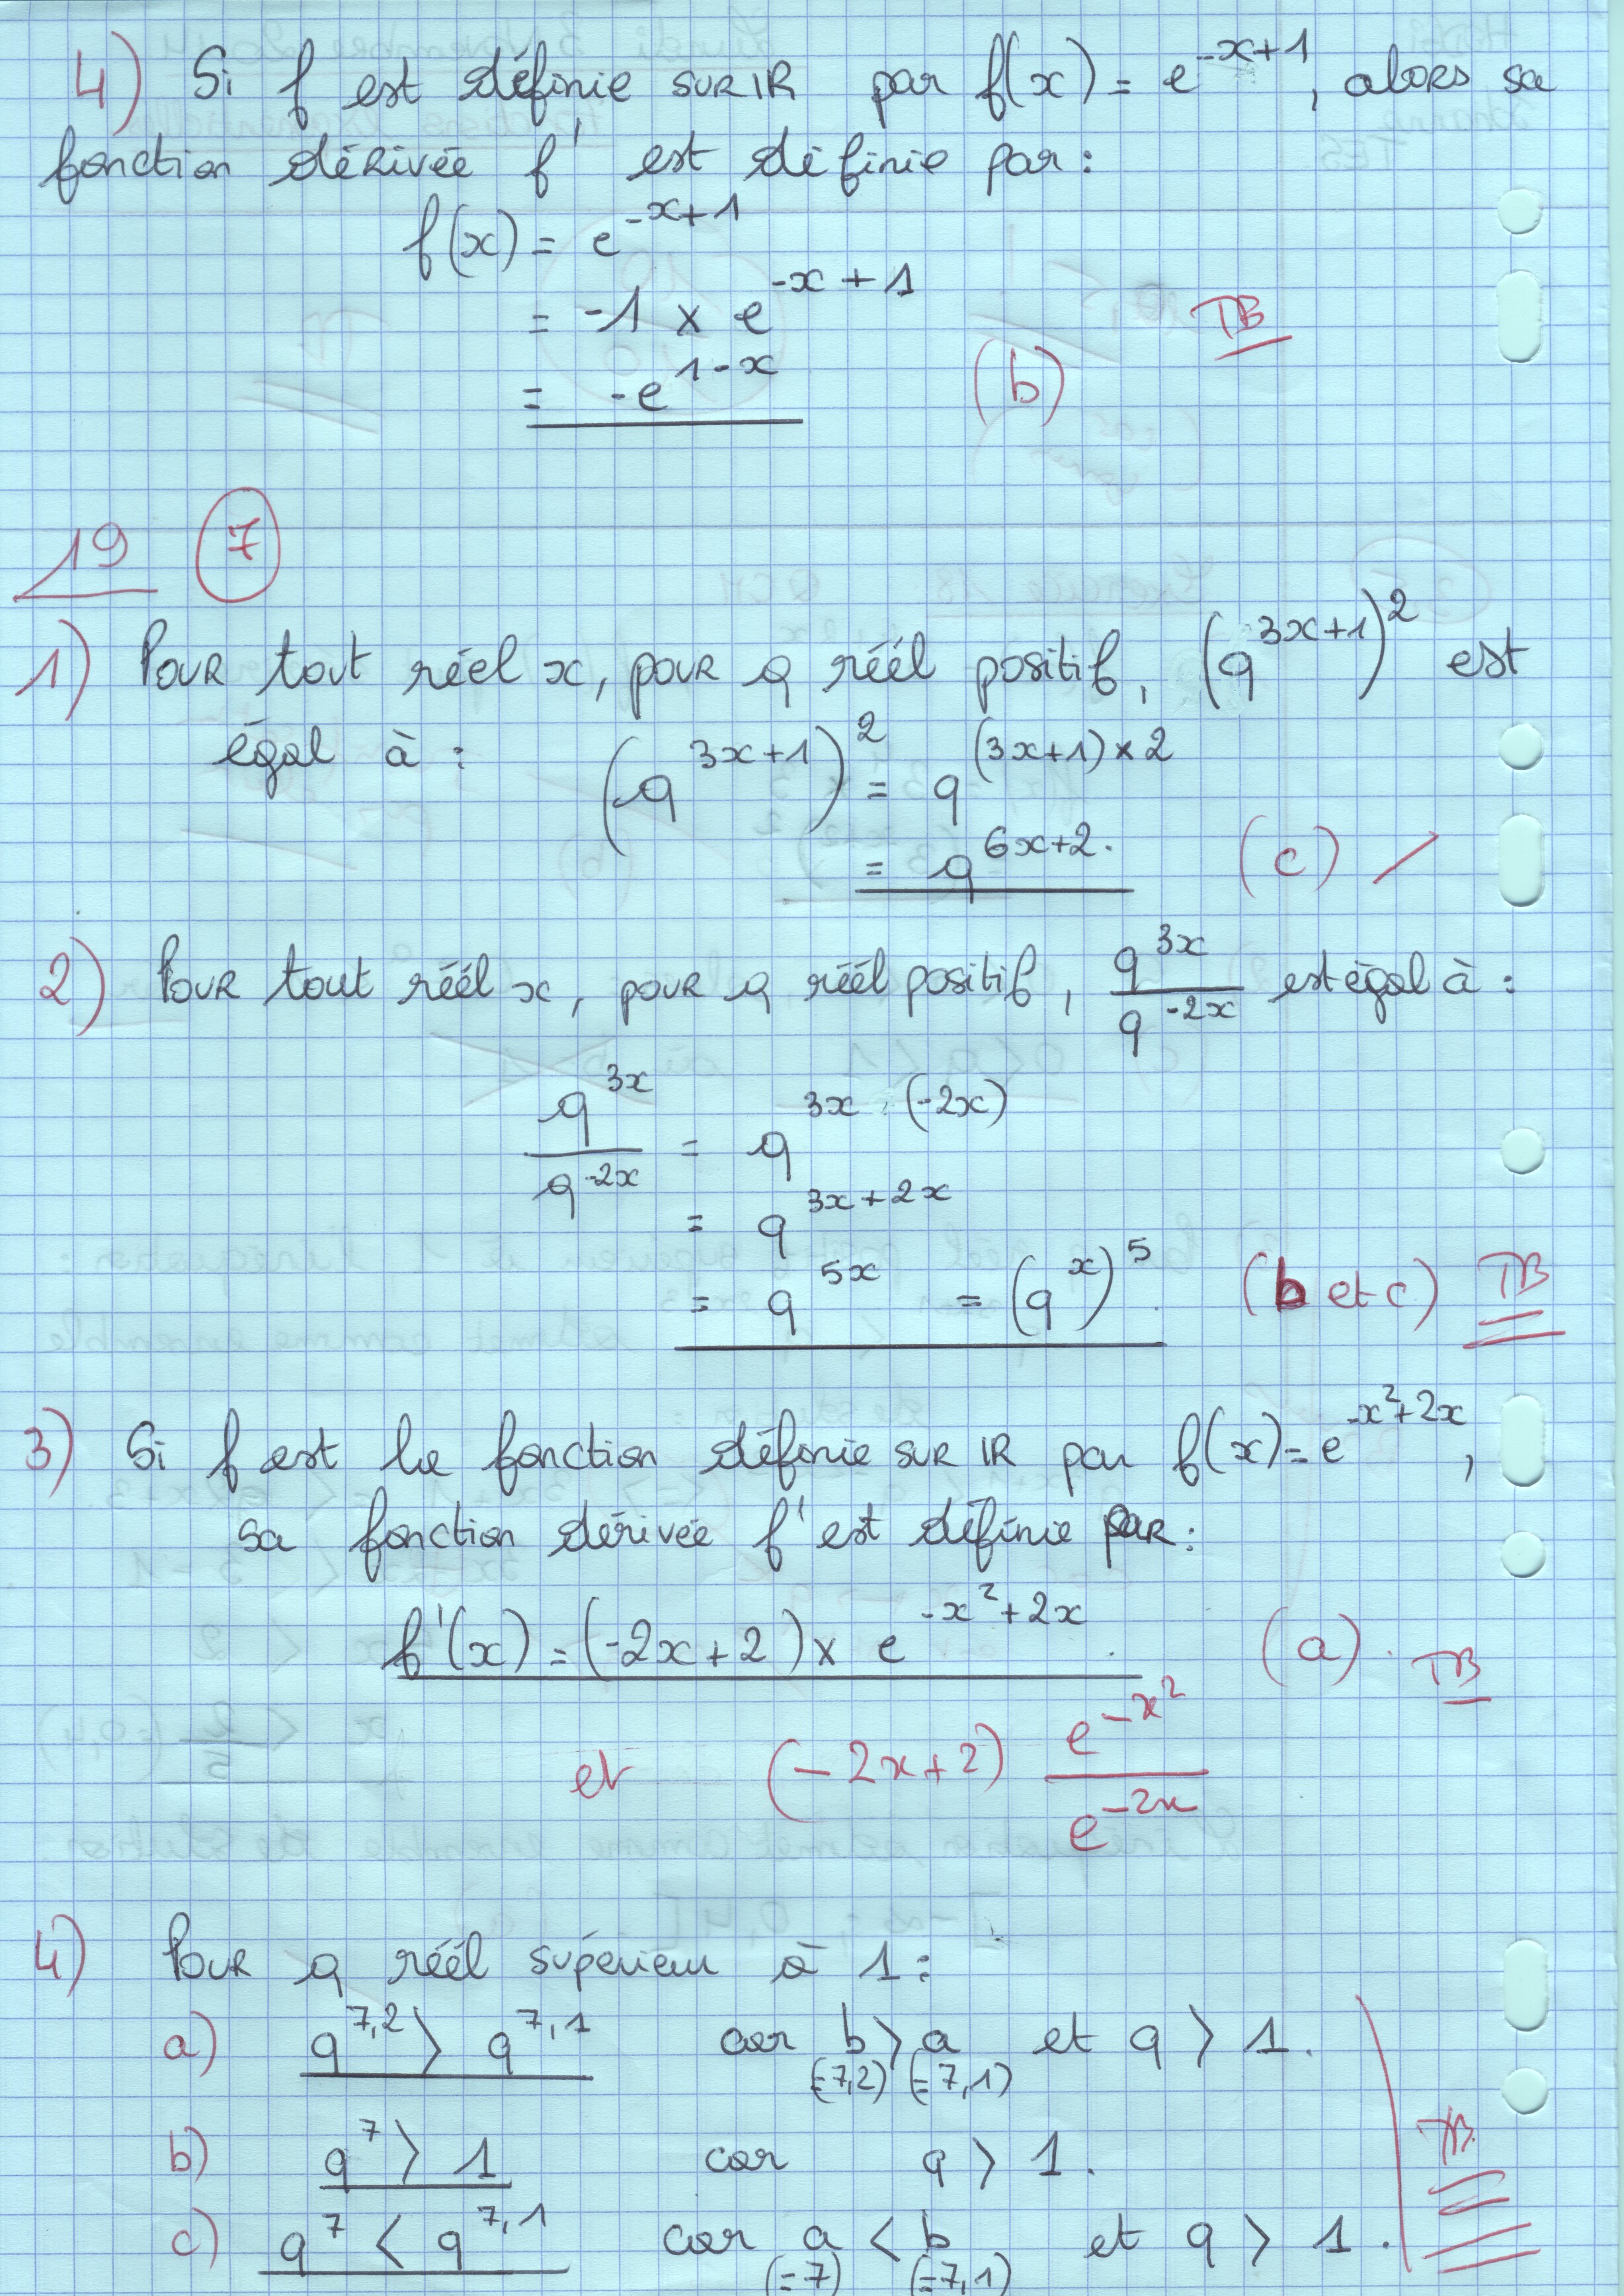 4) Si f est définie sur IR par f(x) = e^{-x+1}, alors sa
fonction dérivée f' est définie par :
f(x) = e^{-x+1}
= -1 × e^{-x+1}
= -e^{1-x} (b) TB
19 7
1) Pour tout réel x, pour q réél positif, (q^{3x+1})^2 est
égal à : (q^{3x+1})^2 = q^{(3x+1)×2}
= q^{6x+2}. (c) /
2) Pour tout réél x, pour q réél positif, q^{3x}/q^{-2x} est égal à :
q^{3x}/q^{-2x} = q^{3x-(-2x)}
= q^{3x+2x}
= q^{5x} = (q^x)^5. (b et c) TB
3) Si f est la fonction définie sur IR par f(x) = e^{-x²+2x},
sa fonction dérivée f' est définie par :
f'(x) = (-2x+2) × e^{-x²+2x}. (a). TB
et (-2x+2) e^{-x²}/e^{-2x}
4) Pour q réél supérieur à 1 :
a) q^{7,2} > q^{7,1} car b > a et q > 1.
(=7,2) (=7,1)
b) q^7 > 1 car q > 1. TB
c) q^7 < q^{7,1} car a < b et q > 1.
(=7) (=7,1)